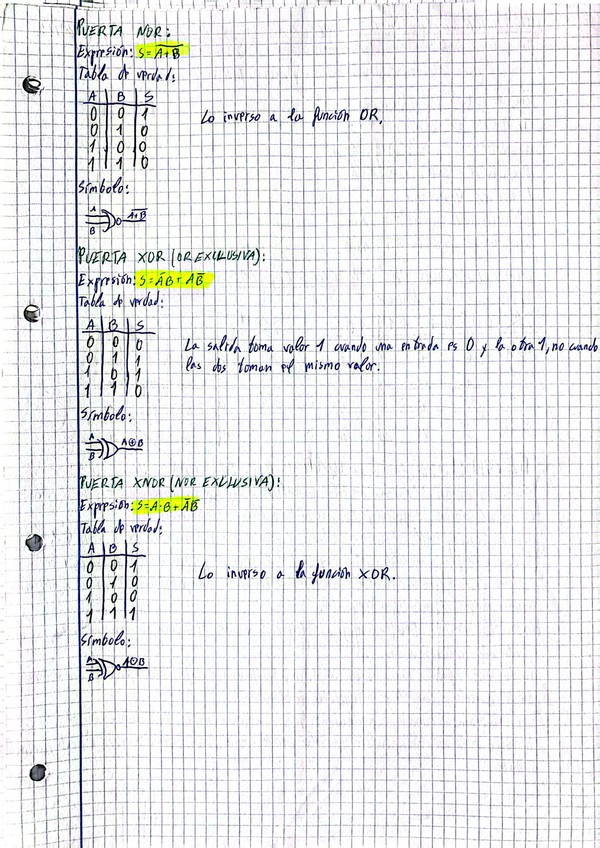 PUERTA NOR:
Expresión: S = A̅+̅B̅
Tabla de verdad:
A B S
0 0 1
0 1 0
1 0 0
1 1 0
Lo inverso a la función OR.
Símbolo:
A
B
A̅+̅B̅
PUERTA XOR (OR EXCLUSIVA):
Expresión: S = A̅B + AB̅
Tabla de verdad:
A B S
0 0 0
0 1 1
1 0 1
1 1 0
La salida toma valor 1 cuando una entrada es 0 y la otra 1, no cuando
las dos toman el mismo valor.
Símbolo:
A
B
A⊕B
PUERTA XNOR (NOR EXCLUSIVA):
Expresión: S = A·B + A̅B̅
Tabla de verdad:
A B S
0 0 1
0 1 0
1 0 0
1 1 1
Lo inverso a la función XOR.
Símbolo:
A
B
A⊙B